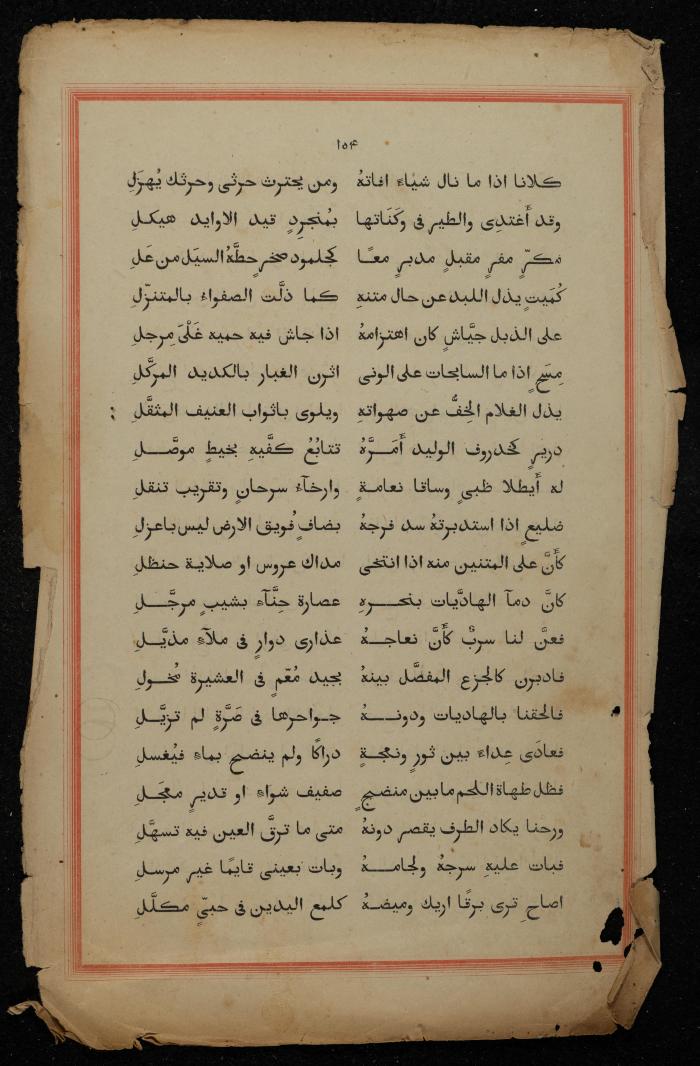 ١٥٤
كلانا اذا ما نال شيٴاء افاتهُ ومن يحترث حرثى وحرثك يُهزلِ
وقد أَغتدِى والطير فى وَكَنَاتها بمُنجرِدٍ قيد الاوايد هيكلِ
مكرٍّ مفرٍ مقبلٍ مدبرٍ معًا كجلمود صخرٍ حطَّهُ السيَل من عَلِ
كُمَيتٍ يذل اللبد عن حال متنهِ كما ذلَّت الصفواءُ بالمتنزّلِ
على الذبل جيَّاشٍ كان اهتزامهُ اذا جاش فيه حميه غَلْىَ مِرجلِ
مِسَحٍ اذا ما السابحات على الونى اثرن الغبار بالكديد المركَّلِ
يذل الغلام الخِفُّ عن صهواتهِ ويلوى باثواب العنيف المثقَّلِ
دريرٍ كخدروف الوليد أَمَرَّهُ تتابُعُ كفَّيهِ بخيطٍ موصَّلِ
له أَيطلا ظبىٍ وساقا نعامةٍ وارخآء سرحانٍ وتقريب تنقلِ
ضليعٍ اذا استدبرتهُ سد فرجهُ بضافٍ فُويق الارض ليس باعزلِ
كأَنَّ على المتنين منه اذا انتحى مداك عروس او صلاية حنظلِ
كانَّ دمآ الهادَّيات بنحرهِ عصارة حِنَّآءٍ بشيبٍ مرجَّلِ
فعنَّ لنا سربٌ كأَنَّ نعاجهُ عذارى دوارٍ فى ملآءٍ مذيَّلِ
فادبرن كالجزع المفصَّل بينهُ بجيد مُعّمٍ فى العشيرة مُخولِ
فالحقنا بالهاديات ودونهُ جواحرها فى صَرَّةٍ لم تزيَّلِ
فعادَى عِداء بين ثورٍ ونعجةٍ دراكًا ولم ينضح بماءٍ فيُغسلِ
فظل طهاة اللحم ما بين منضجٍ صفيف شواءٍ او تديرٍ معجَلِ
ورحنا يكاد الطرف يقصر دونهُ متى ما ترقَّ العين فيه تسهَّلِ
فبات عليهِ سرجهُ ولجامهُ وبات بعينى قايمًا غير مرسلِ
اصاحِ ترى برقًا اريك وميضهُ كلمع اليدين فى حبىٍّ مكلَّلِ